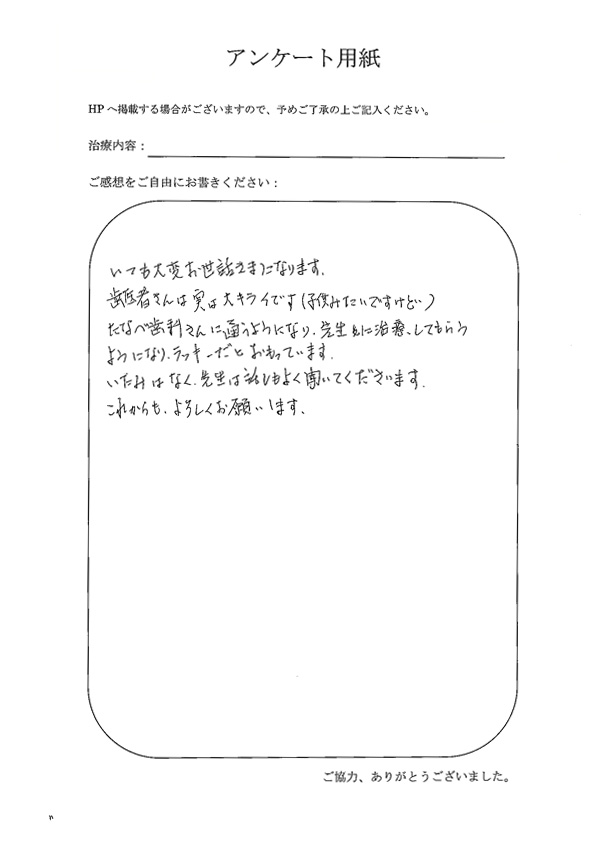 アンケート用紙
HPへ掲載する場合がございますので、予めご了承の上ご記入ください。
治療内容：
ご感想をご自由にお書きください：
いつも大変お世話さまになります。
歯医者さんは実は大キライです(子供みたいですけど…)
たなべ歯科さんに通うようになり、先生に治療してもらう
ようになり、ラッキーだとおもっています。
いたみはなく、先生は話しもよく聞いてくださいます。
これからも、よろしくお願いします。
ご協力、ありがとうございました。